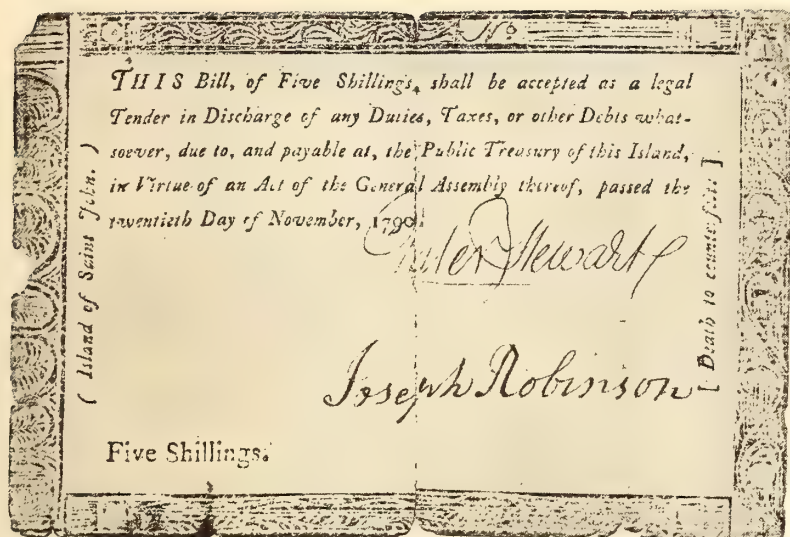 No
THIS Bill, of Five Shillings, shall be accepted as a legal
Tender in Discharge of any Duties, Taxes, or other Debts what-
soever, due to, and payable at, the Public Treasury of this Island,
in Virtue of an Act of the General Assembly thereof, passed the
twentieth Day of November, 1790.
Stewart
Joseph Robinson
Five Shillings.
( Island of Saint John. )
[ Death to counterfeit. ]